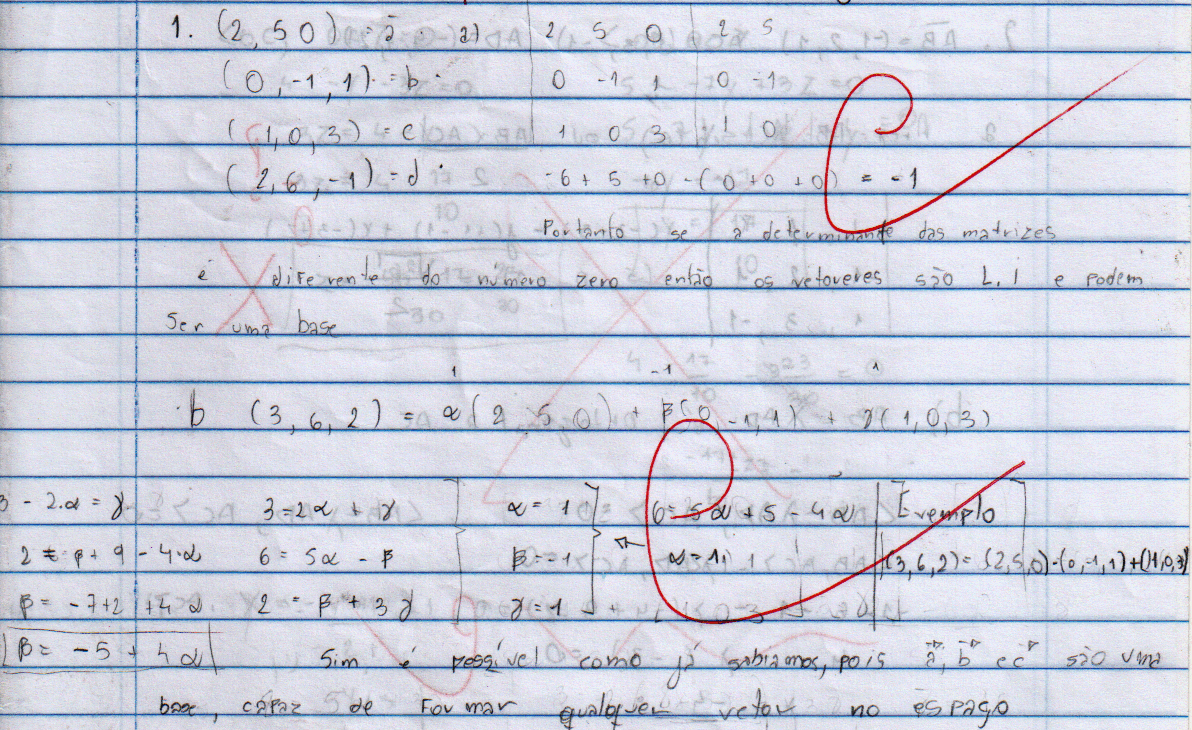 1. (2, 5 0) = a a) 2 5 0 2 5
(0, -1, 1) = b 0 -1 1 0 -1
(1, 0, 3) = c 1 0 3 1 0
(2, 6, -1) = d -6 + 5 + 0 - (0 + 0 + 0) = -1
Portanto se a determinante das matrizes
é diferente do número zero então os vetoveres são L.I e podem
ser uma base
1 -1 1
b (3, 6, 2) = α(2, 5, 0) + β(0, -1, 1) + γ(1, 0, 3)
3 - 2.α = γ 3 = 2α + γ α = 1 6 = 5α + 5 - 4α Exemplo
2 = β + 9 - 4.α 6 = 5α - β β = -1 α = 1 (3, 6, 2) = (2, 5, 0) - (0, -1, 1) + (1, 0, 3)
β = -7 + 2 + 4α 2 = β + 3γ γ = 1
β = -5 + 4α Sim é possível como já sabíamos, pois a, b e c são uma
base, capaz de formar qualquer vetor no espaço